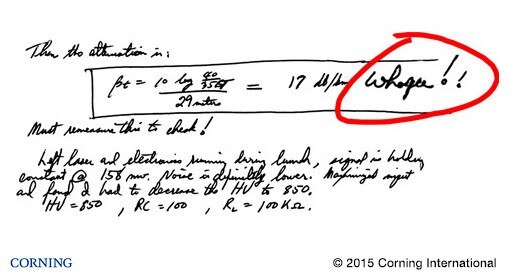 Then the attenuation is:
βt = 10 log 40 / 29 meters = 17 db/km Whopee!!
Must remeasure this to check!
Left laser and electronics running during lunch, signal is holding
constant @ 158 mv. Noise is definitely lower. Maximized input
and found I had to decrease the HV to 850.
HV = 850 , RC = 100 , RL = 100 KΩ.
CORNING
© 2015 Corning International